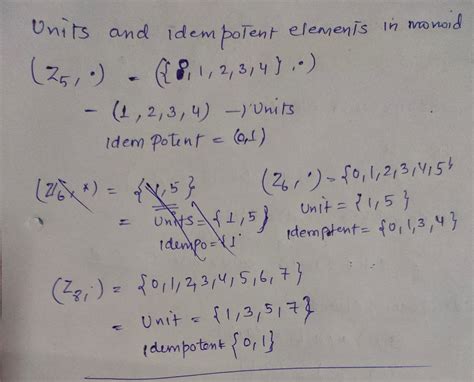 Units and idempotent elements in monoid
(Z5, ·) = ({0,1,2,3,4}, ·)
- (1,2,3,4) → Units
idempotent = (0,1)
(Z6, *) = {1,5}
= Units = {1,5}
idempo = {1}
(Z6, ·) = {0,1,2,3,4,5}
Unit = {1,5}
idempotent = {0,1,3,4}
(Z8, ·) = {0,1,2,3,4,5,6,7}
= Unit = {1,3,5,7}
idempotent {0,1}